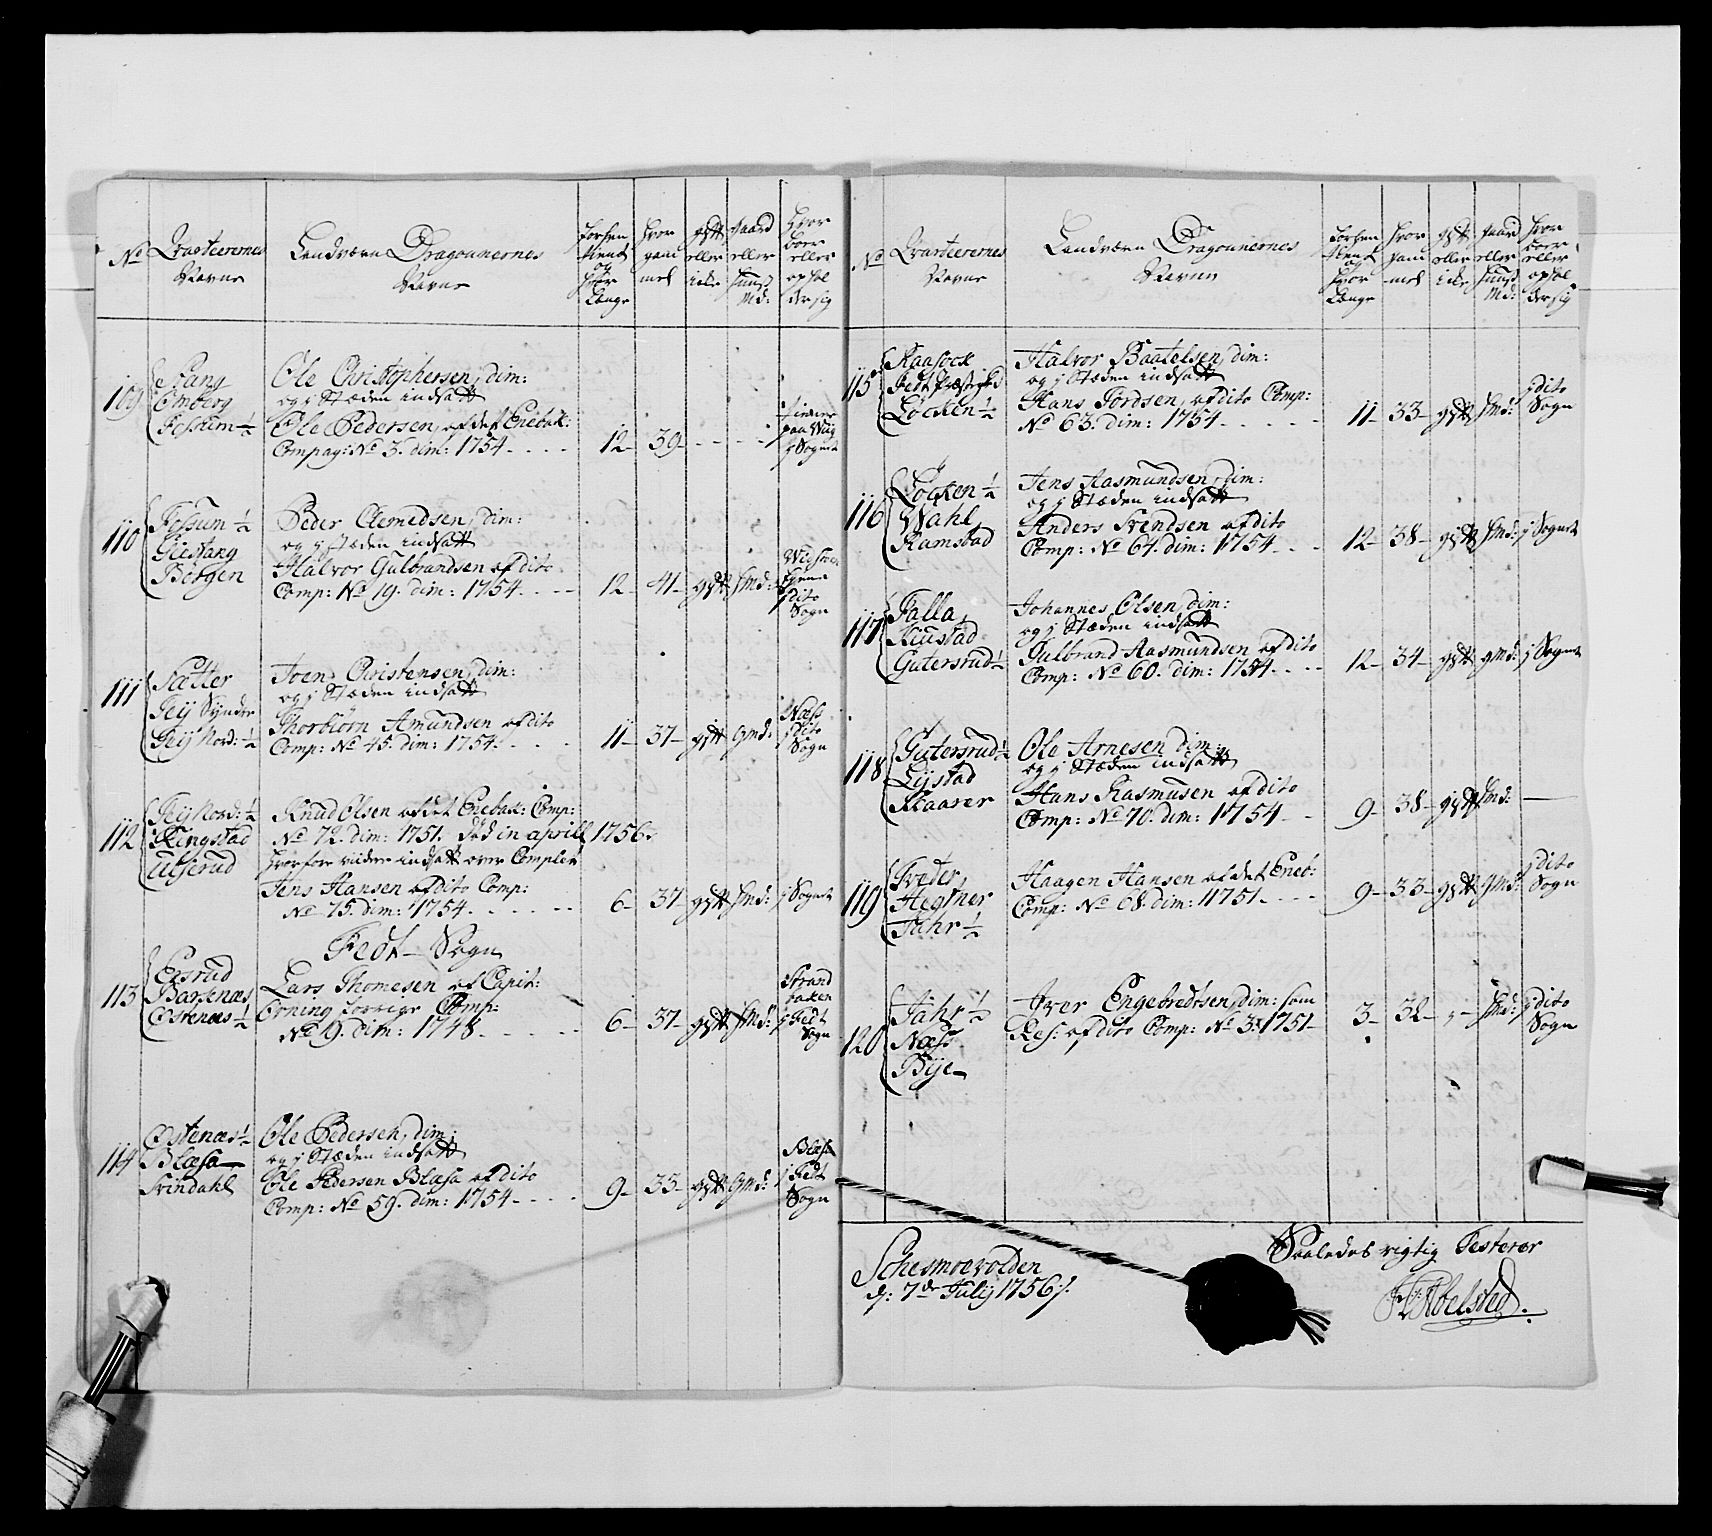 No
Qvarteerernes
Navne
Landværn Dragounernes
Navne
forhen
tient
og
hvor
Længe
hvor
gam
mel
gift
eller
icke
gaard
eller
huus
Md:
hvor
boer
eller
ophol
der sig
109
Stang
Omberg
Fossum ½
Ole Christophersen, dim:
og j Stæden indsatt
Ole Pedersen, af det Enebak:
Compag: No 3. dim: 1754
12
39
tienner
paa
j Sognet
110
Fossum ½
Geistang
Börgen
Peder Clemedsen, dim:
og j Stæden indsatt
Halvor Gulbrandsen af dito
Comp: No 19. dim: 1754
12
41
gift
hmd:
j dito
Sogn
111
Satter
Teij Syndre
Teij Nord: ½
Iven Christensen, dim:
og j Stæden indsatt
Thorbiörn Amundsen af dito
Comp: No 45. dim: 1754
11
37
gift
gmd:
Næss
j dito
Sogn
112
Teij Nord: ½
Ringstad
Ulserud
Knud Olsen af det Enebak: Comp:
No 72. dim: 1751. död in aprill 1756.
hvorfore videre indsatt over Complet
Jens Hansen af dito Comp:
No 75. dim: 1754
6
37
gift
hmd:
j Sognet
Fedt Sogn
113
Ersrud
Barsenæs
Östenæs ½
Lars Thomesen af Capit:
Örning forrige Comp:
No 9. dim: 1748
6
37
gift
hmd:
Strand
backen
j Fedt
Sogn
114
Östenæs ½
Blæsa
Svindahl
Ole Pedersen, dim:
og j Stæden indsatt
Ole Pedersen Blæsa af dito
Comp: No 59. dim: 1754
9
33
gift
gmd:
Blæsa
j Fedt
Sogn
No
Qvarteerernes
Navne
Landværn Dragounernes
Navne
forhen
tient
og
hvor
Længe
hvor
gam
mel
gift
eller
icke
gaard
eller
huus
Md:
hvor
boer
eller
ophol
der sig
115
Fedt Præstgd
Löcken ½
Halvor Baatelsen, dim:
og j Stæden indsatt
Hans Jordsen, af dito Comp:
No 63. dim: 1754
11
33
gift
hmd:
j dito
Sogn
116
Löcken ½
Wahl
Ramstad
Jens Aasmundsen, dim:
og j Stæden indsatt
Anders Svendsen af dito
Comp: No 64. dim: 1754
12
38
gift
hmd:
j Sognet
117
Falla
Riustad
Gutersrud ½
Johannes Olsen, dim:
og j Stæden indsatt
Gulbrand Aasmundsen af dito
Comp: No 60. dim: 1754
12
34
gift
gmd:
j Sognet
118
Gutersrud ½
Lystad
Klaarer
Ole Arnesen dim:
og j Stæden indsatt
Hans Rasmusen af dito
Comp: No 70. dim: 1754
9
38
gift
hmd:
119
Tveder
Hegtner
Jahr ½
Haagen Hansen af det Eneb:
Comp: No 68. dim: 1751
9
33
gift
gmd:
j dito
Sogn
120
Jahr ½
Næss
Bije
Iver Engebredtsen, dim: som
Res: af dito Comp: No 3. 1751
3
32
hmd:
j dito
Sogn
Schesmoevolden
d: 7de Julij 1756.
Saaledes rigtig Testerer
Abelsted.